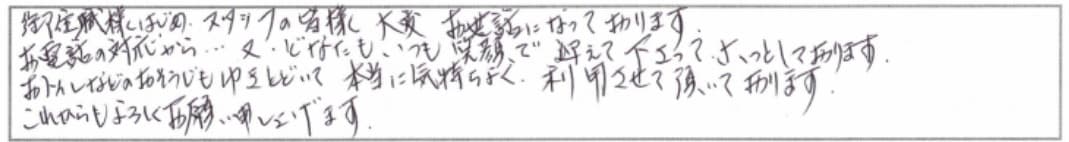 御住職様はじめ、スタッフの皆様に 大変 お世話になっております。
お電話の対応から… 又、どなたも、いつも 笑顔で 迎えて下さって、ホッとしております。
おトイレなどのおそうじも 行きとどいて 本当に気持ちよく、利用させて頂いております。
これからもよろしくお願い申し上げます。